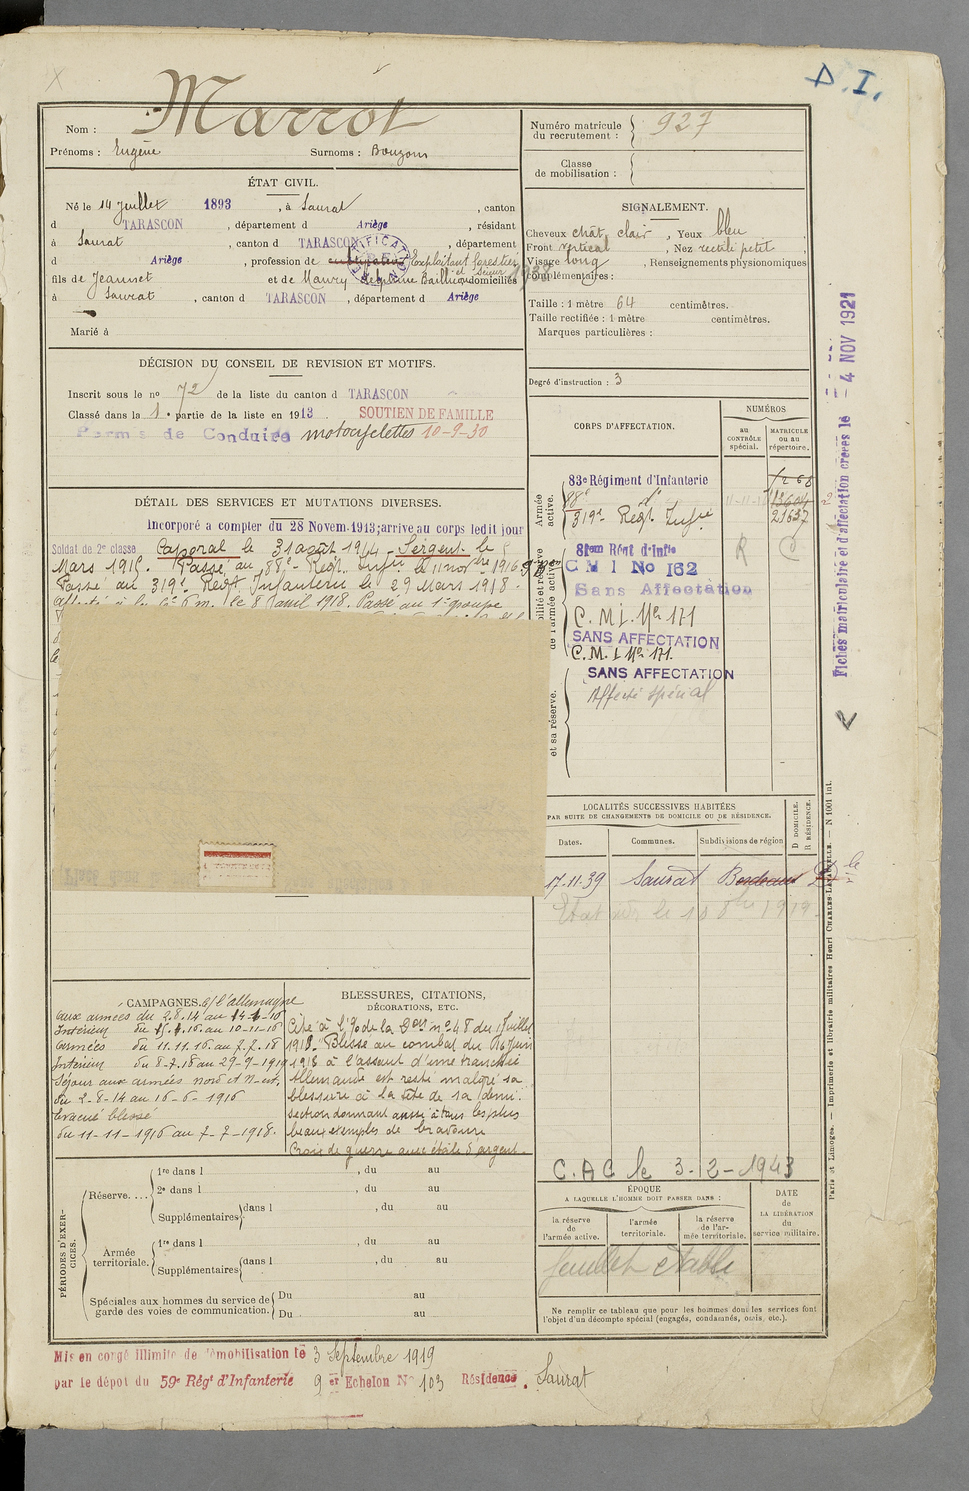 D.I.
Nom : Marrot
Prénoms : Eugène Surnoms : Bouzom
ÉTAT CIVIL.
Né le 14 juillet 1893, à Saurat, canton
d TARASCON, département d Ariège, résidant
à Saurat, canton d TARASCON, département
d Ariège, profession de cultivateur Exploitant forestier
et scieur 1938
fils de Jeannet et de Maury Joséphine Baillieu domiciliés
à Saurat, canton d TARASCON, département d Ariège
Marié à
DÉCISION DU CONSEIL DE REVISION ET MOTIFS.
Inscrit sous le no 72 de la liste du canton d TARASCON
Classé dans la 1e partie de la liste en 1913 SOUTIEN DE FAMILLE
Permis de Conduire motocyclettes 10-9-30
DÉTAIL DES SERVICES ET MUTATIONS DIVERSES.
Incorporé a compter du 28 Novem. 1913; arrive au corps ledit jour
Soldat de 2e classe Caporal le 31 août 1914 - Sergent le 8
Mars 1915. Passé au 88e Regt. Infrie le 11 novbre 1916
Passé au 319e Regt Infanterie le 29 Mars 1918.
le 8 avril 1918. Passé au 1er groupe
CAMPAGNES. c/ l'allemagne
Aux armées du 2.8.14 au
Intérieur du au 10-11-16
Armées du 11.11.16 au 7.7.18
Intérieur du 8-7-18 au 29-9-1919
Séjour aux armées nord et N-est,
du 2-8-14 au 16-6-1916
Evacué blessé
du 11-11-1916 au 7-7-1918.
BLESSURES, CITATIONS,
DÉCORATIONS, ETC.
Cité à l'O de la n° 248 du juillet
1918. Blessé au combat du juin
1918 à l'assaut d'une tranchée
Allemande est resté malgré sa
blessure à la tête de sa demi-
section donnant ainsi à tous les plus
beaux exemples de bravoure
Croix de guerre avec étoile d'argent.
PÉRIODES D'EXERCICES.
Réserve.... 1re dans l , du au
2e dans l , du au
Supplémentaires dans l , du au
Armée territoriale. 1re dans l , du au
Supplémentaires dans l , du au
Spéciales aux hommes du service de Du au
garde des voies de communication. Du au
Mis en congé illimité de démobilisation le 3 Septembre 1919
par le dépot du 59e Régt d'Infanterie 9er Echelon No 103 Résidence. Saurat
Numéro matricule
du recrutement : 927
Classe
de mobilisation :
SIGNALEMENT.
Cheveux chât. clair, Yeux bleu
Front vertical, Nez rectil. petit,
Visage long, Renseignements physionomiques
complémentaires :
Taille : 1 mètre 64 centimètres.
Taille rectifiée : 1 mètre centimètres.
Marques particulières :
Degré d'instruction : 3
CORPS D'AFFECTATION.
NUMÉROS
au
CONTRÔLE
spécial.
MATRICULE
ou au
répertoire.
Armée
active.
83e Régiment d'Infanterie
88e do
319e Regt. Infrie 21637
81eme Régt d'Infie R
C M I No 162
Sans Affectation
C. M. I. No 171
SANS AFFECTATION
C. M. I No 171.
SANS AFFECTATION
Affecté spécial
et sa réserve.
LOCALITÉS SUCCESSIVES HABITÉES
PAR SUITE DE CHANGEMENTS DE DOMICILE OU DE RÉSIDENCE.
Dates. Communes. Subdivisions de région D DOMICILE. R RÉSIDENCE.
17-11-39 Saurat Bordeaux D
C.A.C le 3-12-1943
ÉPOQUE
A LAQUELLE L'HOMME DOIT PASSER DANS :
la réserve
de
l'armée active.
l'armée
territoriale.
la réserve
de l'ar-
mée territoriale.
DATE
de
LA LIBÉRATION
du
service militaire.
feuillet établi
Ne remplir ce tableau que pour les hommes dont les services font
l'objet d'un décompte spécial (engagés, condamnés, omis, etc.).
Fiches matriculaire et d'affectation créées le - 4 NOV 1921
Paris et Limoges. — Imprimerie et librairie militaires Henri CHARLES-LAVAUZELLE. — N 1001 int.